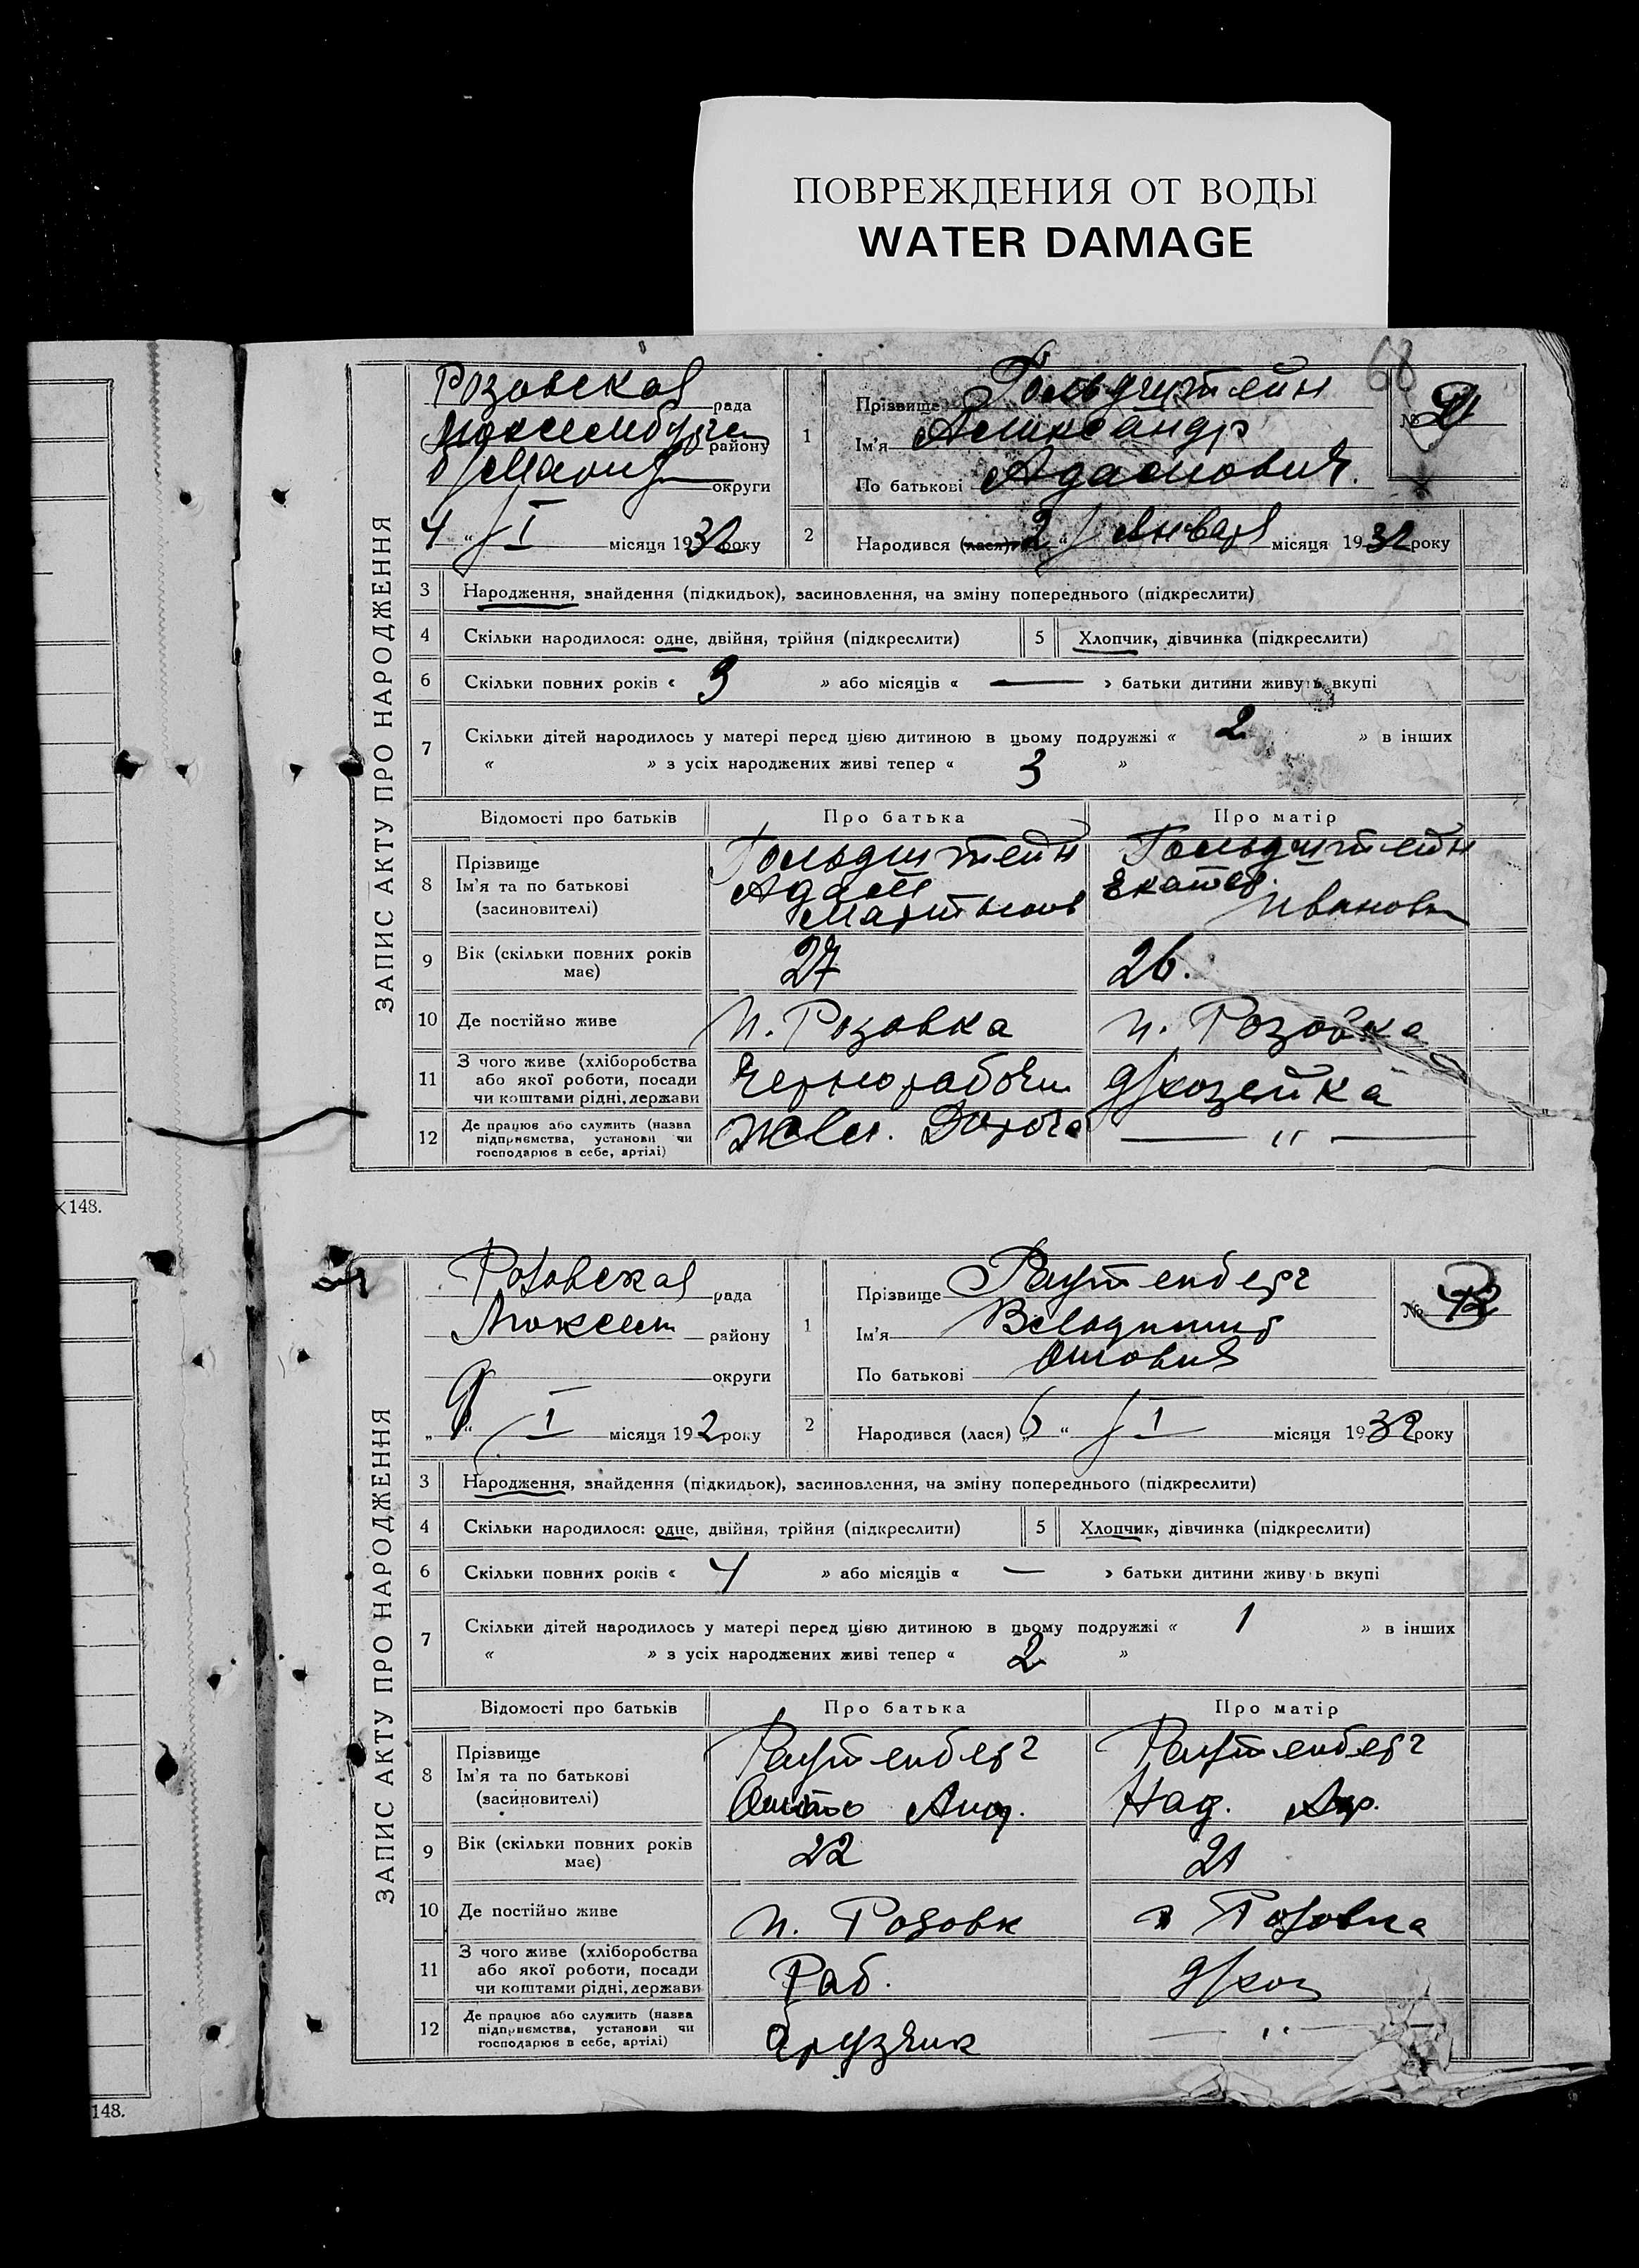 ПОВРЕЖДЕНИЯ ОТ ВОДЫ
WATER DAMAGE
68
ЗАПИС АКТУ ПРО НАРОДЖЕННЯ
Розовская рада
району
округи
4 " I місяця 1932 року
1 Прізвище Гольдштейн
Ім'я Александр
По батькові Адамович.
№
2 Народився (лася) 2 " Января місяця 1932 року
3 Народження, знайдення (підкидьок), засиновлення, на зміну попереднього (підкреслити)
4 Скільки народилося: одне, двійня, трійня (підкреслити) 5 Хлопчик, дівчинка (підкреслити)
6 Скільки повних років « 3 » або місяців « — » батьки дитини живуть вкупі
7 Скільки дітей народилось у матері перед цією дитиною в цьому подружжі « 2 » в інших
« » з усіх народжених живі тепер « 3 »
Відомості про батьків Про батька Про матір
8 Прізвище
Ім'я та по батькові
(засиновителі)
Гольдштейн
Адам
Мартынов
Гольдштейн
Екатер.
Ивановн
9 Вік (скільки повних років має) 27 26.
10 Де постійно живе п. Розовка п. Розовка
11 З чого живе (хліборобства
або якої роботи, посади
чи коштами рідні, держави
Чернорабочи д/хозейка
12 Де працює або служить (назва
підприємства, установи чи
господарює в себе, артілі)
Жел. Дорога — " —
×148.
ЗАПИС АКТУ ПРО НАРОДЖЕННЯ
Розовская рада
Люксем району
округи
" " I місяця 192 року
1 Прізвище Раутенберг
Ім'я Владимир
По батькові Оттович
№
2 Народився (лася) " 6 " I місяця 1932 року
3 Народження, знайдення (підкидьок), засиновлення, на зміну попереднього (підкреслити)
4 Скільки народилося: одне, двійня, трійня (підкреслити) 5 Хлопчик, дівчинка (підкреслити)
6 Скільки повних років « 4 » або місяців « — » батьки дитини живуть вкупі
7 Скільки дітей народилось у матері перед цією дитиною в цьому подружжі « 1 » в інших
« » з усіх народжених живі тепер « 2 »
Відомості про батьків Про батька Про матір
8 Прізвище
Ім'я та по батькові
(засиновителі)
Раутенберг
Отто
Раутенберг
Над.
9 Вік (скільки повних років має) 22 21
10 Де постійно живе п. Розовк п Розовка
11 З чого живе (хліборобства
або якої роботи, посади
чи коштами рідні, держави
Раб. д/хоз
12 Де працює або служить (назва
підприємства, установи чи
господарює в себе, артілі)
Грузчик — " —
148.